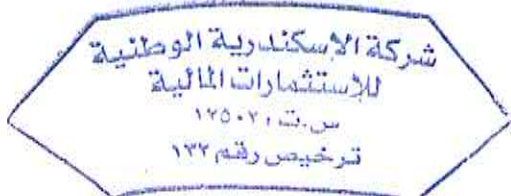 شركة الإسكندرية الوطنية
للإستثمارات المالية
س.ت، ١٢٥٠٢٠
ترخيص رقم ١٣٢